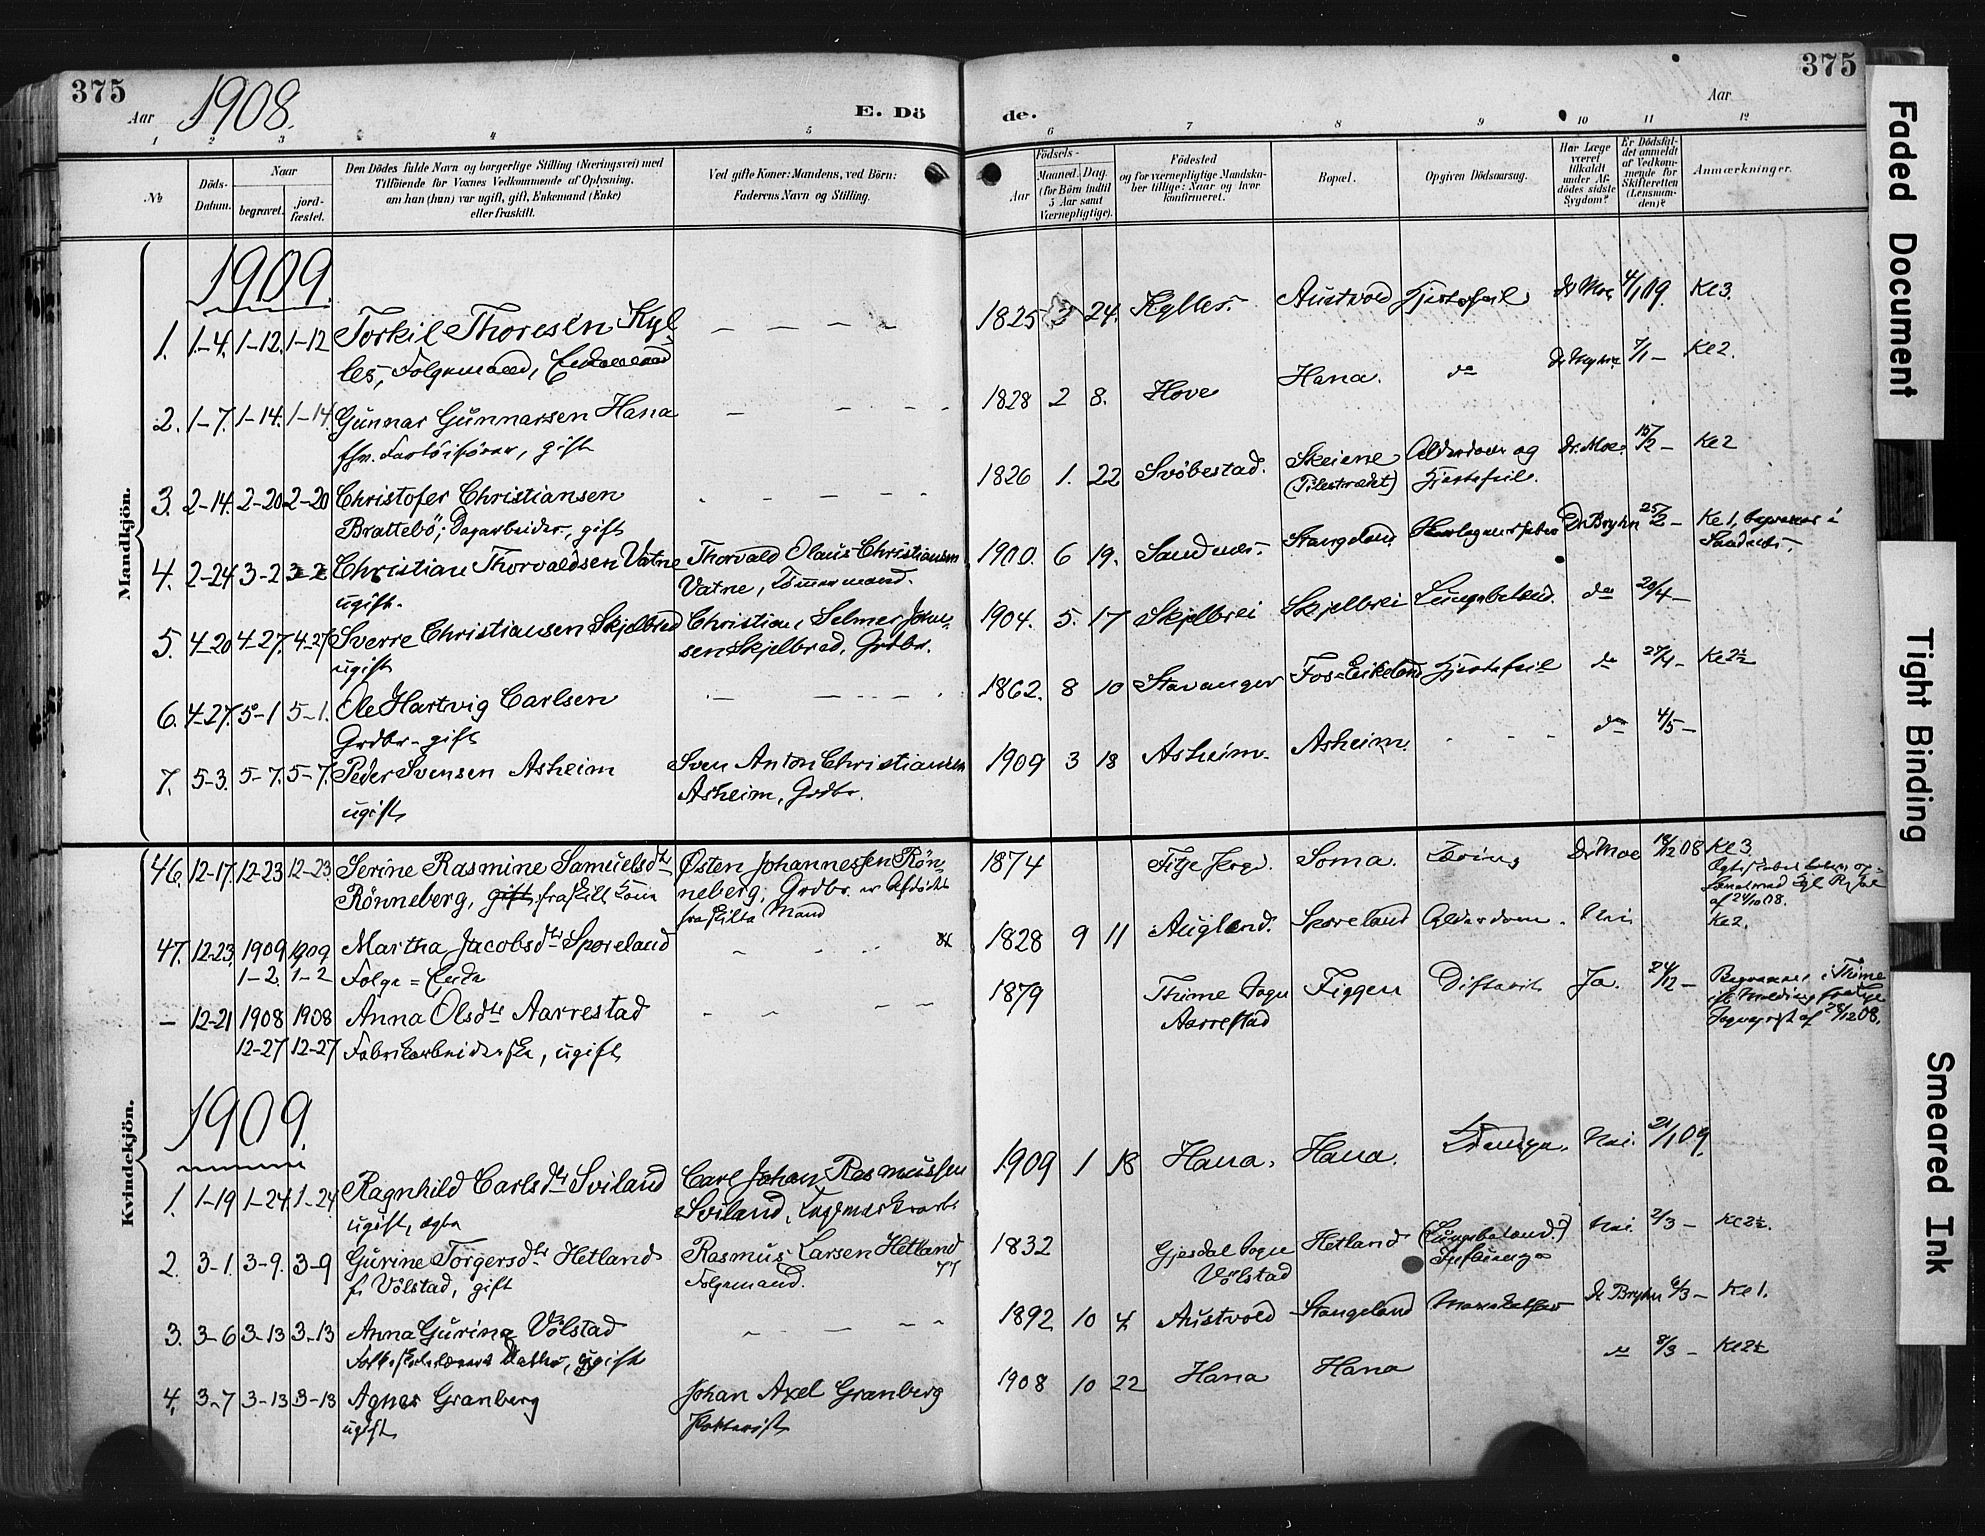 375
Aar 1908.
E. Döde.
Aar
375
1 2 3 4 5 6 7 8 9 10 11 12
№
Döds-Datum.
Naar
begravet.
jord-fæstet.
Den Dödes fulde Navn og borgerlige Stilling (Næringsvei) med
Tilföiende for Voxnes Vedkommende af Oplysning,
om han (hun) var ugift, gift, Enkemand (Enke)
eller fraskilt.
Ved gifte Koner: Mandens, ved Börn:
Faderens Navn og Stilling.
Födsels-
Aar
Maaned. Dag.
(for Börn indtil
5 Aar samt
Værnepligtige).
Födested
og for værnepligtige Mandska-
ber tillige: Naar og hvor
konfirmeret.
Bopæl.
Opgiven Dödsaarsag.
Har Læge
været
tilkaldt
under Af-
dödes sidste
Sygdom?
Er Dödsfal-
det anmeldt
af Vedkom-
mende for
Skifteretten
(Lensman-
den)?
Anmærkninger.
Mandkjön.
1909.
1. 1-4. 1-12. 1-12 Torkil Thoresen Kyl- 1825 3 24. Kylles. Austvold Hjertefeil Dr Moe 4/1 09. Kl 3.
les, Folgemand, Enkemand
2. 1-7. 1-14. 1-14. Gunnar Gunnarsen Hana 1828 2 8. Hove Hana. do 7/1 - Kl 2.
fhv. Fartöiförer, gift
3. 2-14. 2-20 2-20 Christofer Christiansen 1826 1. 22 Svöbestad. Skeiene Alderdom og Dr. Moe. 15/2 - Kl 2
Brattebö; Dagarbeider, gift Hjertefeil.
4. 2-24 3-2 3-2 Christian Thorvaldsen Vatne Thorvald Olaus Christiansen 1900. 6 19. Sandnes. Stangeland Dr Bryhn 25/2 - Kl 1, begraves i
ugift. Vatne, Tömmermand. Sandnes.
5. 4-20 4-27. 4-27 Sverre Christiansen Skjelbred Christian Selmer Johan- 1904. 5. 17 Skjelbrei Skjelbrei Lungebetænd. do 20/4 -
ugift sen Skjelbred, Grdbr.
6. 4-27. 5-1 5-1. Ole Hartvig Carlsen 1862. 8 10 Stavanger Fos-Eikeland Hjertefeil do 27/4 - Kl 2½
Grdbr. - gift
7. 5-3. 5-7. 5-7. Peder Svensen Asheim Sven Anton Christiansen 1909 3 18 Asheim. Asheim. do 4/5 -
ugift Asheim, Grdbr.
Kvindekjön.
46. 12-17. 12-23 12-23. Serine Rasmine Samuelsdtr Østen Johannessen Rön- 1874 Soma. Tæring Dr Moe 18/12 08 Kl 3
Rönneberg, gift, fraskilt Kone neberg, Grdbr. er Afdödes
fraskilte Mand af 24/10 08.
47. 12-23. 1909 1909 Martha Jacobsdtr Sporeland 1828 9 11 Augland. Sporeland Alderdom. Nei Kl 2.
1-2. 1-2 Folge-Enke
- 12-21 1908 1908 Anna Olsdtr Aarrestad 1879 Thime Sogn Figgen Difterit Ja. 24/12 - Begraves i Thime
12-27 12-27 Fabrikarbeiderske, ugift Aarrestad
1909.
1. 1-19 1-24. 1-24 Ragnhild Carlsdtr Sviland Carl Johan Rasmussen 1909 1 18 Hana. Hana. Nei. 21/1 09.
ugift, ægte Sviland,
2. 3-1. 3-9. 3-9 Gurine Torgersdtr Hetland Rasmus Larsen Hetland 1832 Gjesdal Sogn Hetland (Lungebetænd.?) Nei 2/3 - Kl 2½.
f. Völstad, gift Folgemand. 77 Völstad Influenza
3. 3-6 3-13 3-13 Anna Gurine Völstad 1892 10 4. Austvold Stangeland Dr Bryhn 6/3 - Kl 1.
ugift
4. 3-7 3-13 3-13 Agnes Granberg Johan Axel Granberg 1908 10 22 Hana Hana do 8/3 - Kl 2½
ugift
Faded Document
Tight Binding
Smeared Ink